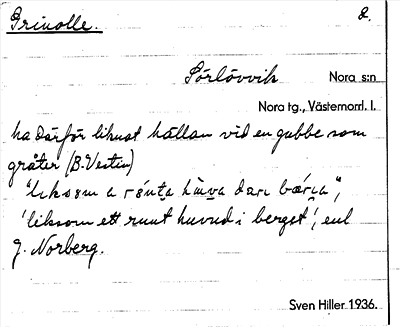 Grinolle. 2.
Sörlövvik Nora s:n
Nora tg., Västernorrl. l.
ha därför liknat hällan vid en gubbe som
gråter (B. Vestin)
"liksom a rúnta hùva dan bærja",
'liksom ett runt huvud i berget', enl
J. Norberg.
Sven Hiller 1936.